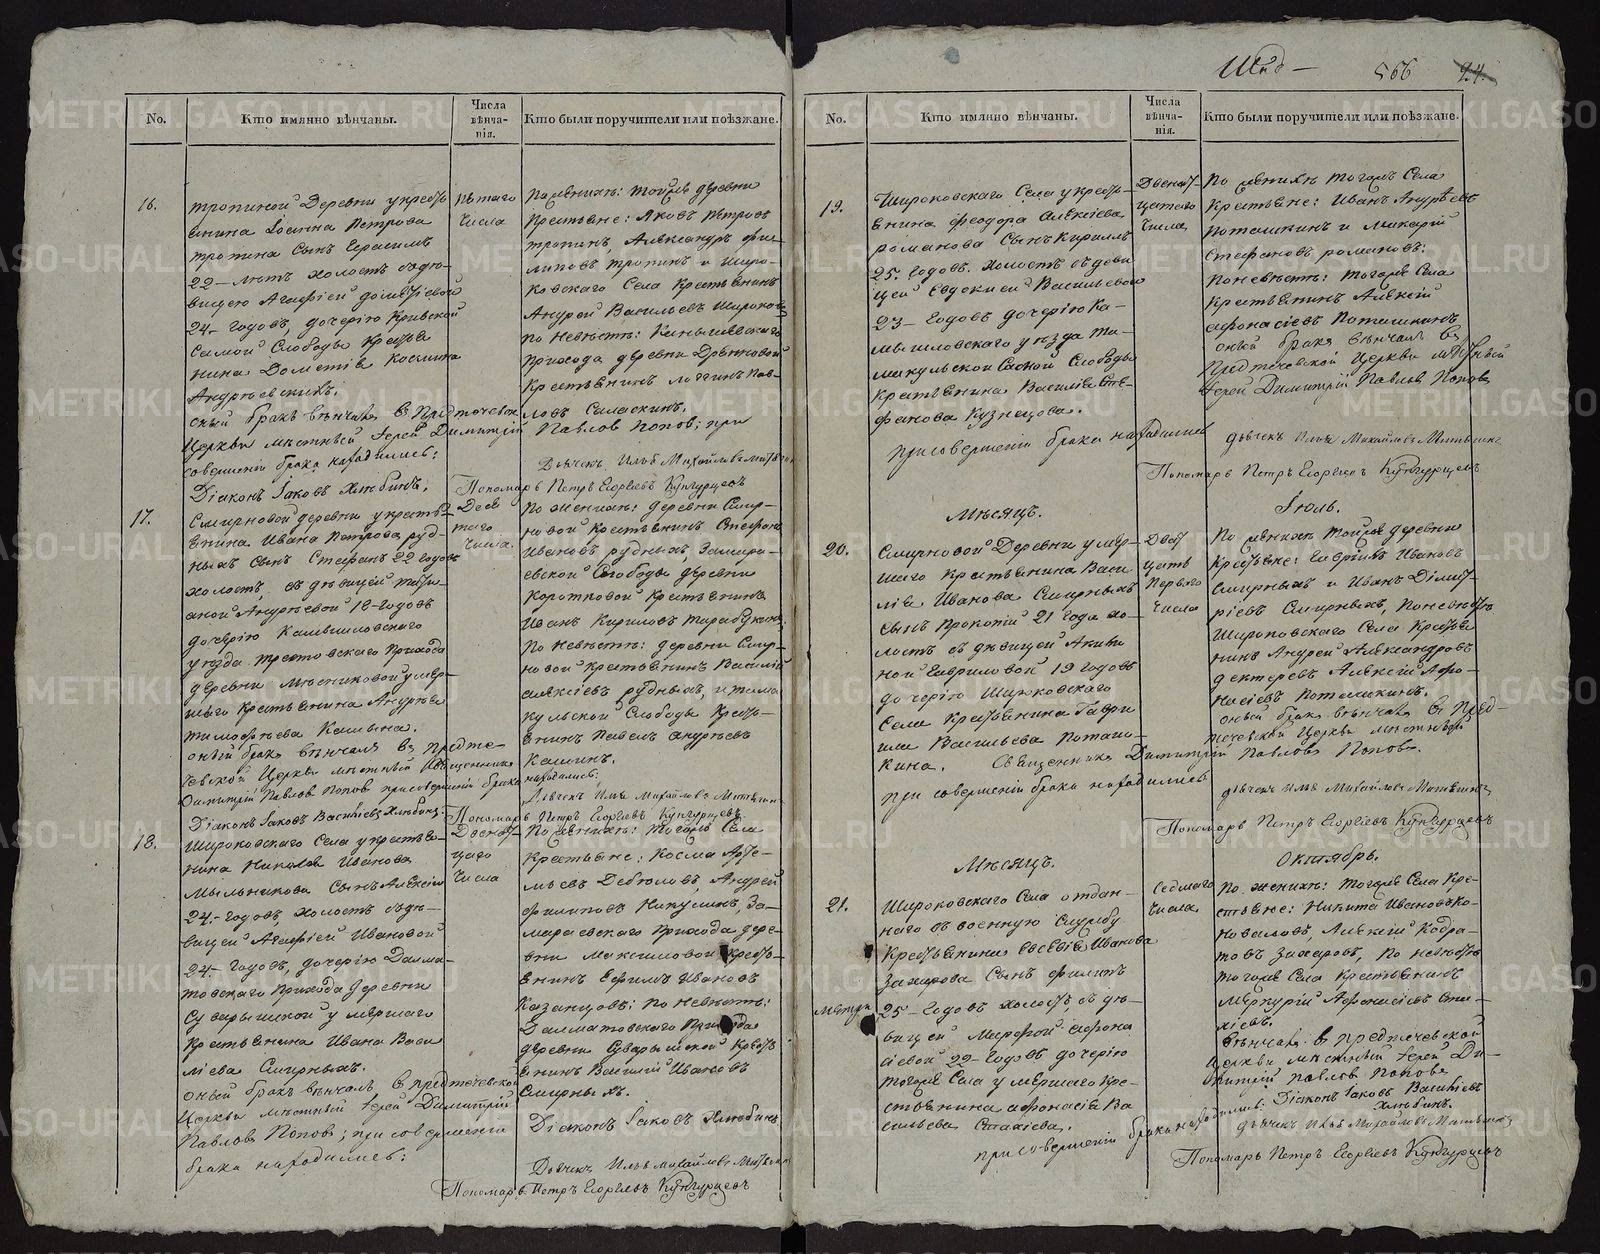 No.
Кто имянно вѣнчаны.
Числа вѣнча-нія.
Кто были поручители или поѣзжане.
16.
тропиной Деревни у кресть
янина Іоанна Петрова
тропина Сынъ Герасимъ
22 – лѣтъ холостъ съ дѣ-
вицею Агафіей дометіевой
24- годовъ, дочерію Кривской
Самой Слободы Кресья
нина Дометія Космина
Андрѣевскихъ.
сный бракъ вѣнчалъ въ Предтечевск
Церкви мѣстный Іерей Димитрій Павловъ Попов; при
совершеніи брака находились:
Діаконъ Іаковъ Хлюбинъ.
пятаго
Числа
По женихѣ: тойже деревни
Крестьяне: Яковъ Петровъ
тропинъ, Александръ фи-
липовъ тропинъ и Широ-
ковскаго Села Крестьянинъ
Андрей Васильевъ Широковъ
по Невѣстѣ:
прихода деревни
Крестьянинъ Пав-
ловъ
Дьячекъ Илья Михайловъ
Пономарь Петръ Георгіевъ Кунгурцевъ
17.
Смирновой деревни у кресть-
янина Ивана Петрова руд-
ныхъ Сынъ Стефанъ 22 Годовъ
холостъ, съ дѣвицей татья-
аной Андрѣевой 18-годовъ
дочерію Камышловскаго
уѣзда прихода
деревни Мясниковой умер-
шаго Крестьянина Андрѣя
тимофѣева Калмина.
оный бракъ вѣнчалъ въ предте-
чевской Церкви мѣстный Священникъ
Димитрій Павловъ Попов при совершеніи брака находились:
Діаконъ Іаковъ Васильевъ Хлюбинъ.
Деся
таго
Числа.
По женихѣ: деревни Смир-
новой Крестьянинъ Стефанъ
Ивановъ рудныхъ,
евской Слободы деревни
Коротковой Крестьянинъ
Иванъ Кириловъ
По Невѣстѣ: деревни Смир-
новой Крестьянинъ Василій
алексѣевъ рудныхъ, и тама
кульской Слободы Кресть-
янинъ Павелъ андрѣевъ
Калминъ.
Дьячекъ Илья Михайловъ
Пономарь Петръ Георгіевъ Кунгурцевъ.
18.
Широковскаго Села у крестья-
нина Николая Иванова
Мыльникова Сынъ Алексѣй
24.- годовъ холостъ съ дѣ-
вицей Агафіей Ивановой
24- годовъ, дочерію Далма-
товскаго Прихода Деревни
Суварышской умершаго
Крестьянина Ивана Васи
ліева Смирныхъ.
оный бракъ вѣнчалъ въ предтечевской
Церкви мѣстный Іерей Димитрій
Павловъ Поповъ; при совершеніи
брака находились:
Двенат-
цаго
Числа
По женихѣ: тогоже Села
Крестьяне: Косма Арте-
мьевъ Дебтоловъ, Андрей
Филиповъ Никулинъ, За-
мараевскаго прихода дере-
вни Максимовой Кресть-
янинъ Ефимъ Ивановъ
Казанцовъ; по Невѣстѣ:
Далматовскаго Прихода
деревни Суварышской Кресть
янинъ Василій Ивановъ
Смирныхъ.
Діаконъ Іаковъ Хлюбинъ.
Дьячекъ Илья Михайловъ
Пономарь Петръ Георгіевъ Кунгурцевъ
566
24.
No.
Кто имянно вѣнчаны.
Числа вѣнча-нія.
Кто были поручители или поѣзжане.
19.
Широковскаго Села у кресть-
янина феодора Алексѣева
романова Сынъ Кирилъ
25. годовъ. холостъ съ деви
цей Евдокіей Васильевой
23- годовъ дочерію Ка-
мышловскаго уѣзда та-
макульской Слободы
Крестьянина Василія Сте-
фанова Кузнецова.
при совершеніи брака находились
Двенат-
цатаго
Числа,
По женихѣ тогоже Села
Крестьяне: Иванъ Андрѣевъ
Поташкинъ и Макарій
Стефановъ романовъ:
По невѣстѣ: тогоже Села
Крестьянинъ Алексѣй
афонасіевъ Поташкинъ
оный бракъ вѣнчалъ въ
Предтечевской Церкви мѣстный
Іерей Димитрій Павлов Поповъ
дьячекъ Илья Михайловъ
Пономарь Петръ Георгіевъ Кунгурцевъ
Мѣсяцъ. Іюль.
20.
Смирновой Деревни умер-
шаго Крестьянина Васи
лія Иванова Смирныхъ
Сынъ Прокопій 21 Года хо-
лостъ съ дѣвицей Акили
ной Гавриловой 19 годовъ
дочерію Широковскаго
Села Крестьянина Гаври
ила Васильева Поташ-
кина. Священникъ Димитрій Павловъ Поповъ.
при совершеніи брака находились
Двад
цать
Перваго
Числа
По женихѣ тойже деревни
Крестьяне: Гаврилъ Ивановъ
Смирныхъ и Иванъ Дімит-
ріевъ Смирныхъ, по невѣстѣ
Широковскаго Села Крестья
нинъ Андрей Александровъ
дектеревъ Алексѣй Афо-
насіевъ Поташкинъ.
оный бракъ вѣнчалъ въ Пред-
течевской Церкви мѣстный
дьячекъ Илья Михайловъ
Пономарь Петръ Георгіевъ Кунгурцевъ
Мѣсяцъ. Октябрь.
21.
Широковскаго Села отдан-
наго въ военную Службу
Крестьянина Евсевія Иванова
Захарова Сынъ Филипъ
25- Годовъ холостъ, съ дѣ-
вицей Марфой Афона
сіевой 22- Годовъ дочерію
тогоже Села умершаго Кре-
стьянина афонасія Ва
сильева
при совершеніи брака находились:
Седмаго
Числа
По женихѣ: тогоже Села Кре-
стьяне: Никита Ивановъ Ко-
новаловъ, Алексѣй Кодра-
товъ Захаровъ, По невѣстѣ
тогоже Села Крестьянинъ
Меркурій Афонасіевъ
вѣнчалъ въ предтечевской
Церкви мѣстный Іерей Ди-
митрій Павловъ Поповъ
Діаконъ Іаковъ Васильевъ
Хлюбинъ.
дьячекъ Илья Михайловъ
Пономарь Петръ Георгіевъ Кунгурцевъ
METRIKI.GASO-URAL.RU